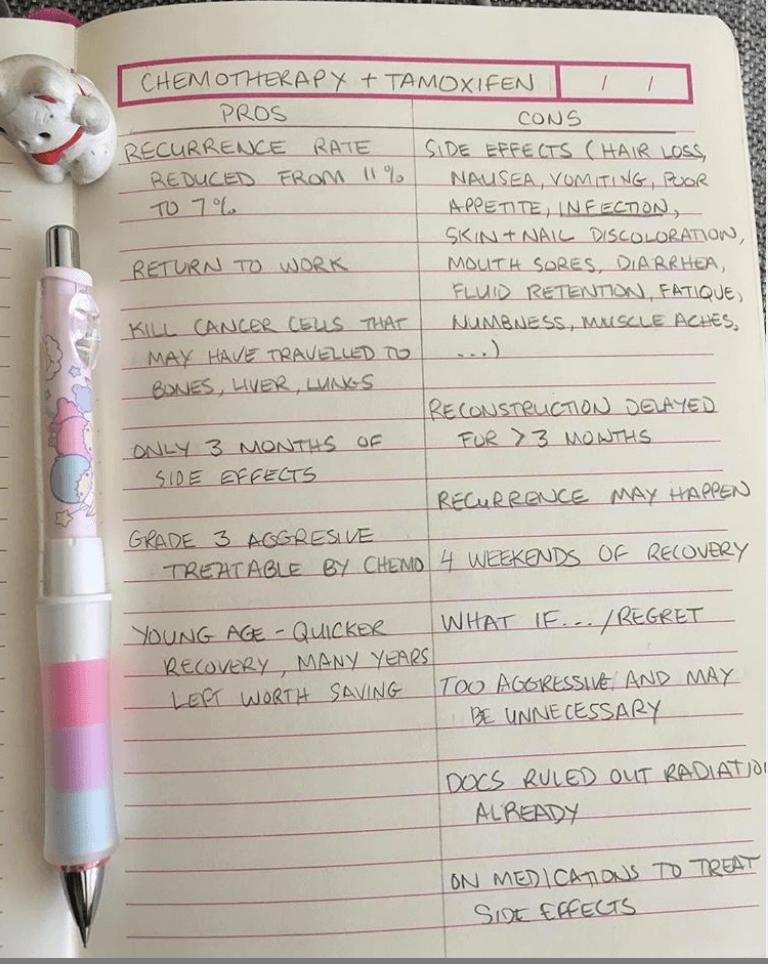 CHEMOTHERAPY + TAMOXIFEN / /
PROS
RECURRENCE RATE
REDUCED FROM 11%
TO 7%
RETURN TO WORK
KILL CANCER CELLS THAT
MAY HAVE TRAVELLED TO
BONES, LIVER, LUNGS
ONLY 3 MONTHS OF
SIDE EFFECTS
GRADE 3 AGGRESIVE
TREATABLE BY CHEMO
YOUNG AGE - QUICKER
RECOVERY, MANY YEARS
LEFT WORTH SAVING
CONS
SIDE EFFECTS (HAIR LOSS,
NAUSEA, VOMITING, POOR
APPETITE, INFECTION,
SKIN + NAIL DISCOLORATION,
MOUTH SORES, DIARRHEA,
FLUID RETENTION, FATIQUE,
NUMBNESS, MUSCLE ACHES,
...)
RECONSTRUCTION DELAYED
FOR > 3 MONTHS
RECURRENCE MAY HAPPEN
4 WEEKENDS OF RECOVERY
WHAT IF... / REGRET
TOO AGGRESSIVE AND MAY
BE UNNECESSARY
DOCS RULED OUT RADIATIO
ALREADY
ON MEDICATIONS TO TREAT
SIDE EFFECTS